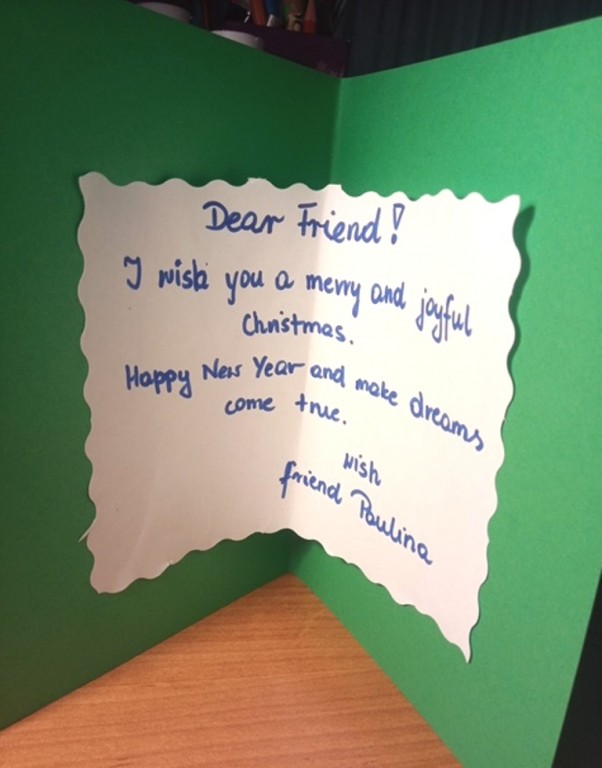 Dear Friend!
I wish you a merry and joyful
Christmas.
Happy New Year and make dreams
come true.
wish
friend Paulina